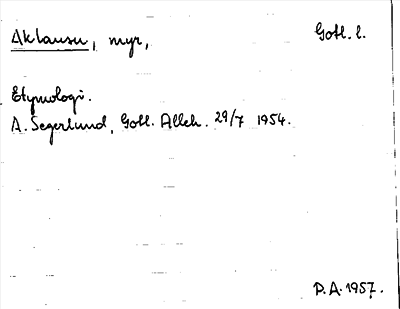 Aklausu, myr, Gotl. l.
Etymologi.
A. Segerlund, Gotl. Alleh. 29/7 1954.
P.A. 1957.